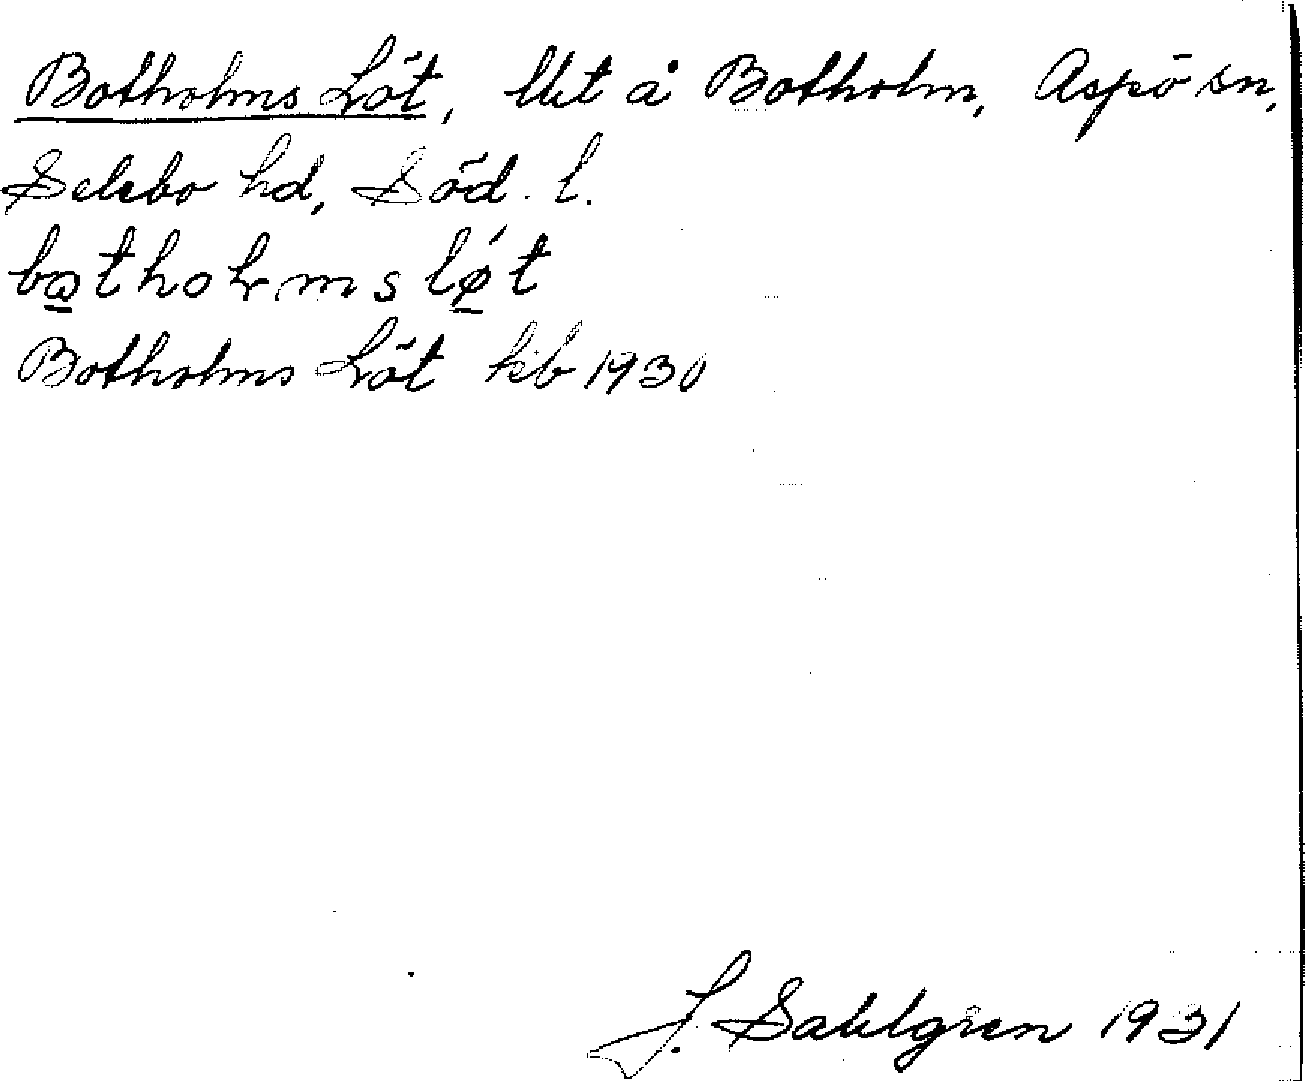 Botholms Löt, lht å Botholm, Aspö sn,
Selebo hd, Söd. l.
Botholms Löt kb 1930
J. Sahlgren 1931